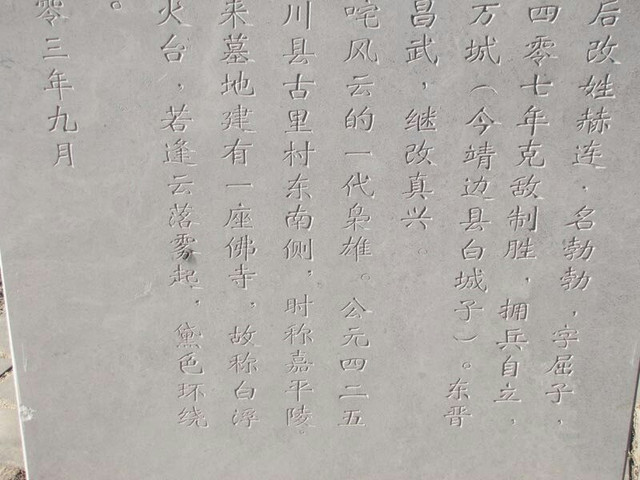 后改姓赫连，名勃勃，字屈子，
四零七年克敌制胜，拥兵自立，
万城（今靖边县白城子）。东晋
昌武，继改真兴。
咤风云的一代枭雄。公元四二五
川县古里村东南侧，时称嘉平陵。
来墓地建有一座佛寺，故称白浮
火台，若逢云落雾起，黛色环绕
。
零三年九月